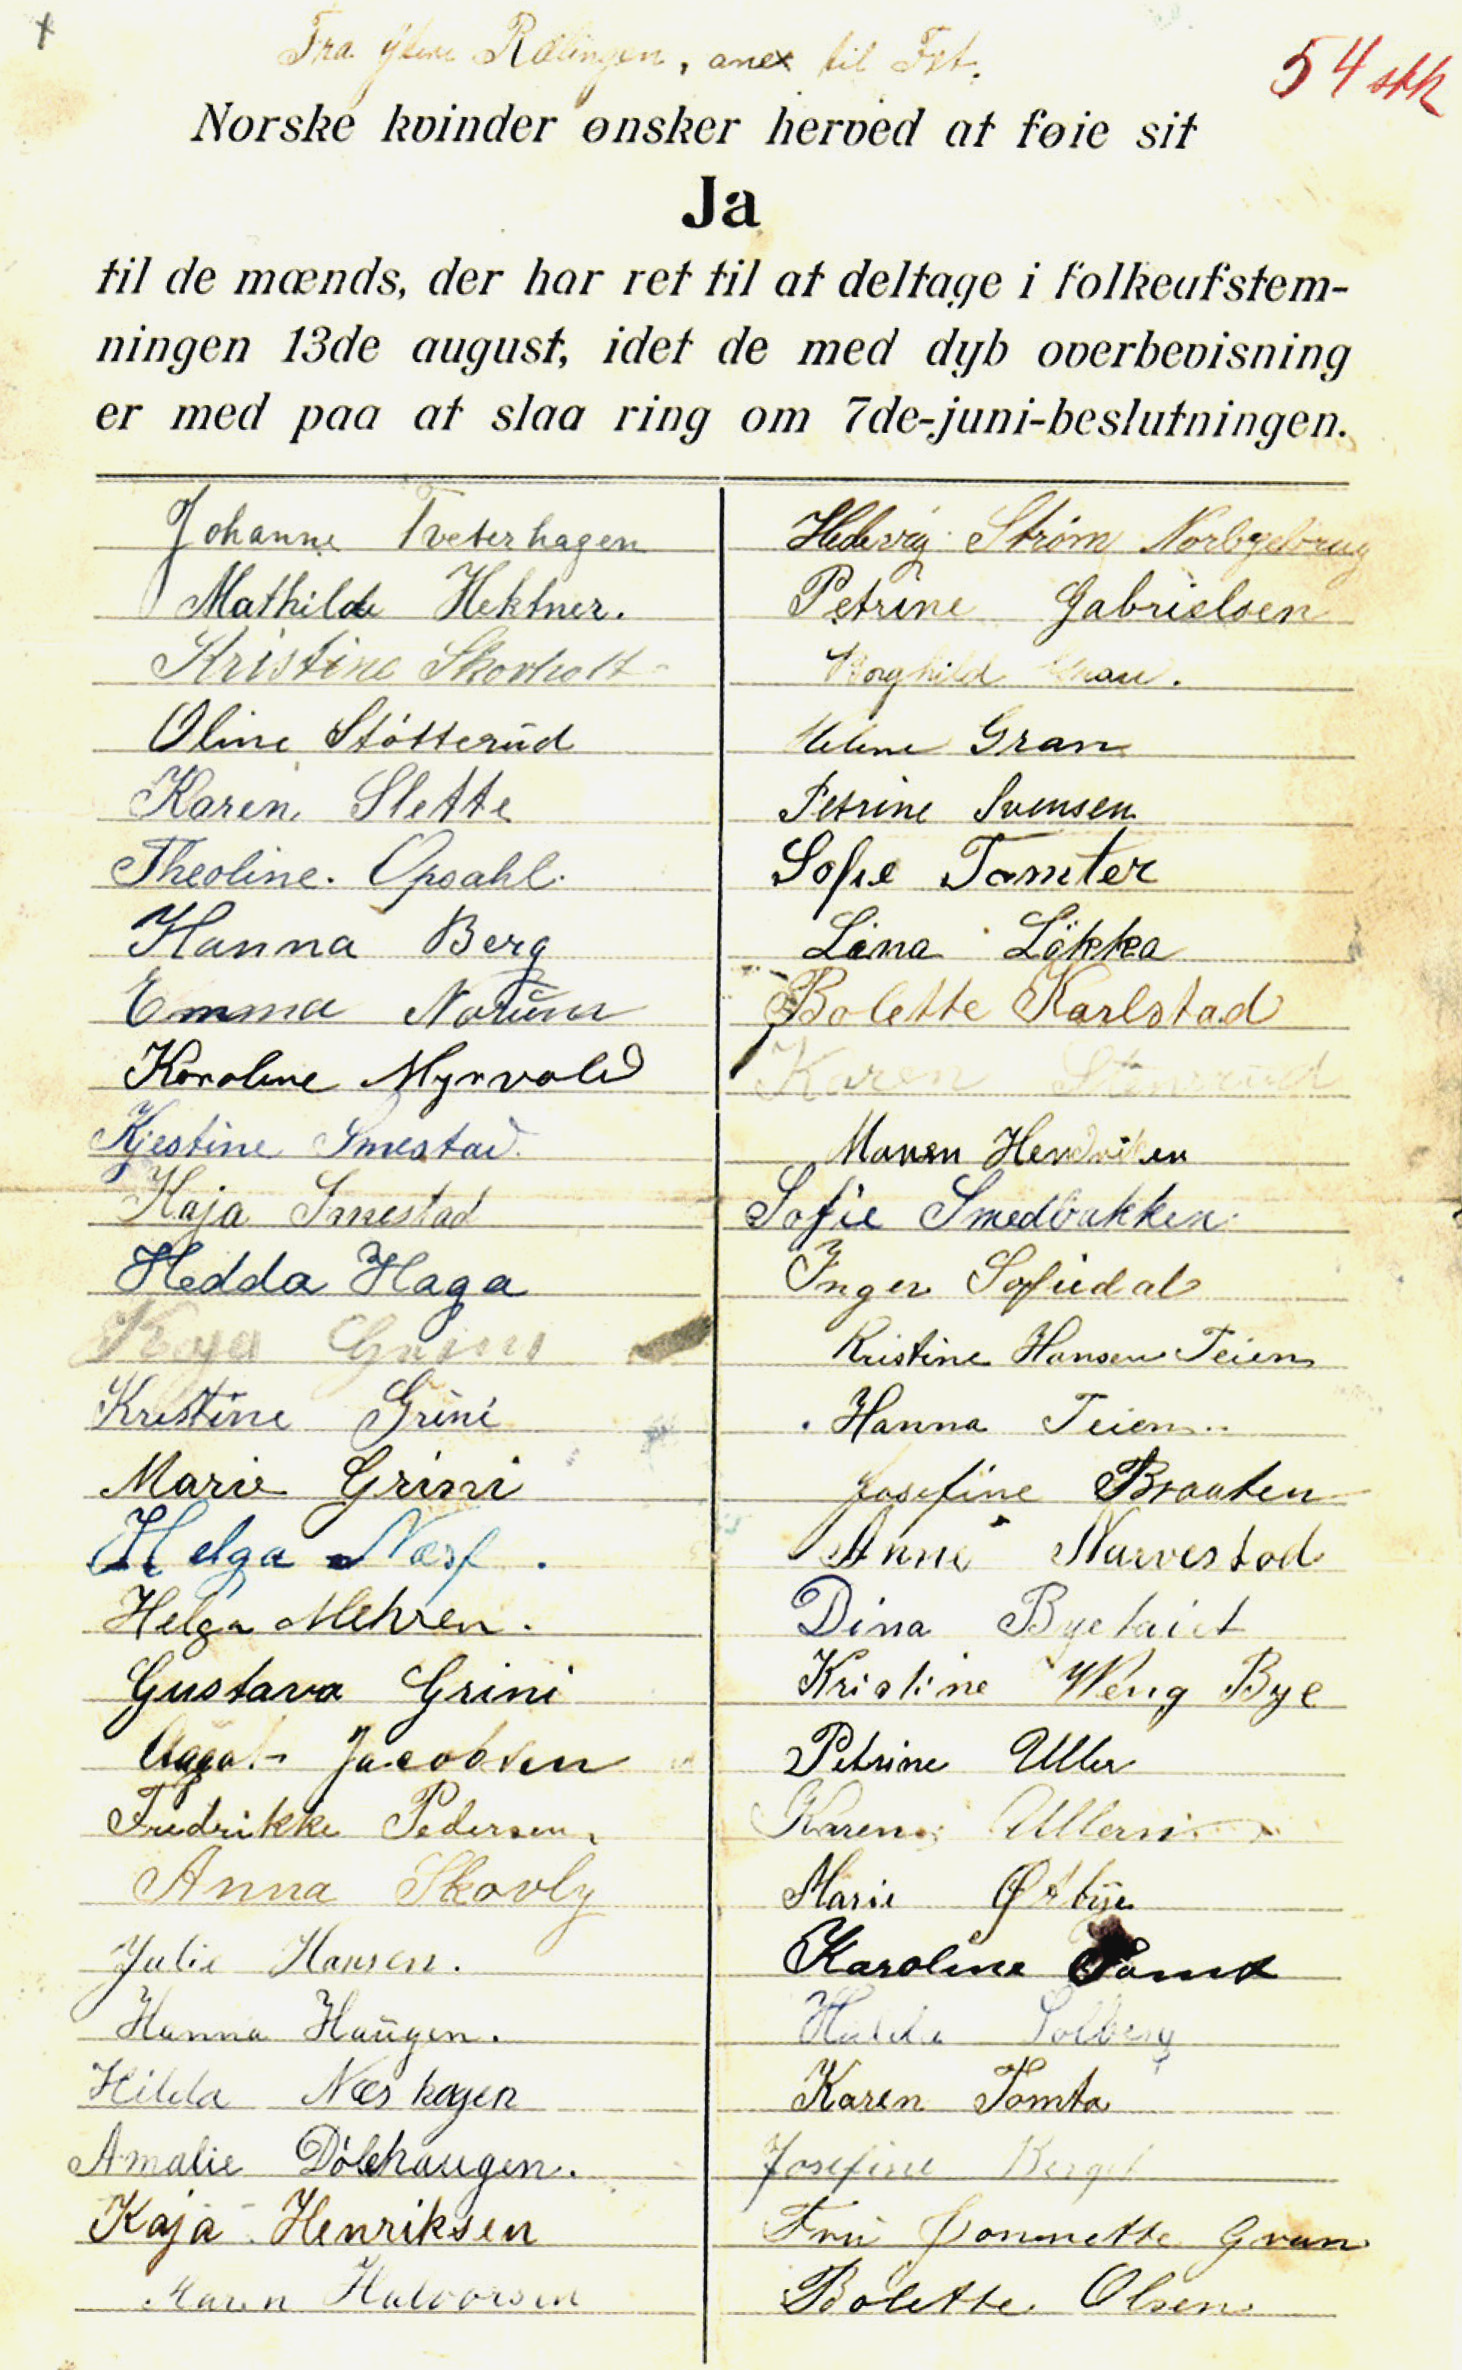 Fra ytere Rælingen, anex til Fet.
54 stk
Norske kvinder ønsker herved at føie sit
Ja
til de mænds, der har ret til at deltage i folkeafstem-
ningen 13de august, idet de med dyb overbevisning
er med paa at slaa ring om 7de-juni-beslutningen.
Johanne Tveterhagen
Mathilde Hektner.
Kristine Skovholt
Oline Støtterud
Karen Slette
Theoline. Opsahl.
Hanna Berg
Emma Norum
Karoline Myrvold
Kjestine Smestad.
Kaja Smestad
Hedda Haga
Kaja Grini
Kristine Grini
Marie Grini
Helga Næss.
Helga Mehren.
Gustava Grini
Jacobsen
Fredrikke Pedersen
Anna Skovly
Julie Hansen.
Hanna Haugen.
Hilda Næshagen
Amalie Dølehaugen.
Kaja Henriksen
Maren Halvorsen
Hedevig Strøm Norbyebrug
Petrine Gabrielsen
Borghild
Helene Gran
Petrine Svensen
Sofie Tomter
Lina Løkka
Bolette Karlstad
Karen
Maren Hendriksen
Sofie Smedbakken
Inger Sofiedal
Kristine Hansen Teien
Hanna Teien
Josefine Braaten
Anne Narvestad
Dina
Kristine Weng Bye
Petrine Uller
Karen
Marie Østbye
Karoline
Hulda Solberg
Karen Tomta
Josefine Berget
Fru Gran
Bolette Olsen